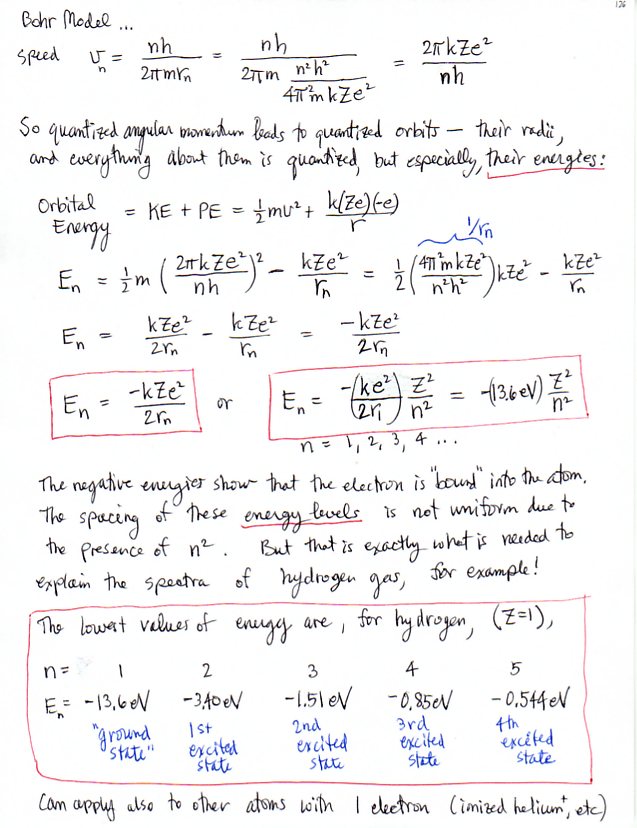 126
Bohr Model ...
speed v_n = nh / 2πmr_n = nh / (2πm n²h² / 4π²mkZe²) = 2πkZe² / nh
So quantized angular momentum leads to quantized orbits — their radii,
and everything about them is quantized, but especially, their energies:
Orbital Energy = KE + PE = ½mv² + k(Ze)(-e) / r
1/r_n
E_n = ½m (2πkZe² / nh)² - kZe² / r_n = ½ (4π²mkZe² / n²h²) kZe² - kZe² / r_n
E_n = kZe² / 2r_n - kZe² / r_n = -kZe² / 2r_n
E_n = -kZe² / 2r_n or E_n = -(ke² / 2r₁) Z² / n² = -(13.6 eV) Z² / n²
n = 1, 2, 3, 4 ...
The negative energies show that the electron is "bound" into the atom.
The spacing of these energy levels is not uniform due to
the presence of n². But that is exactly what is needed to
explain the spectra of hydrogen gas, for example!
The lowest values of energy are, for hydrogen, (Z=1),
n = 1 2 3 4 5
E_n = -13.6 eV -3.40 eV -1.51 eV -0.85 eV -0.544 eV
"ground state" 1st excited state 2nd excited state 3rd excited state 4th excited state
Can apply also to other atoms with 1 electron (ionized helium⁺, etc)